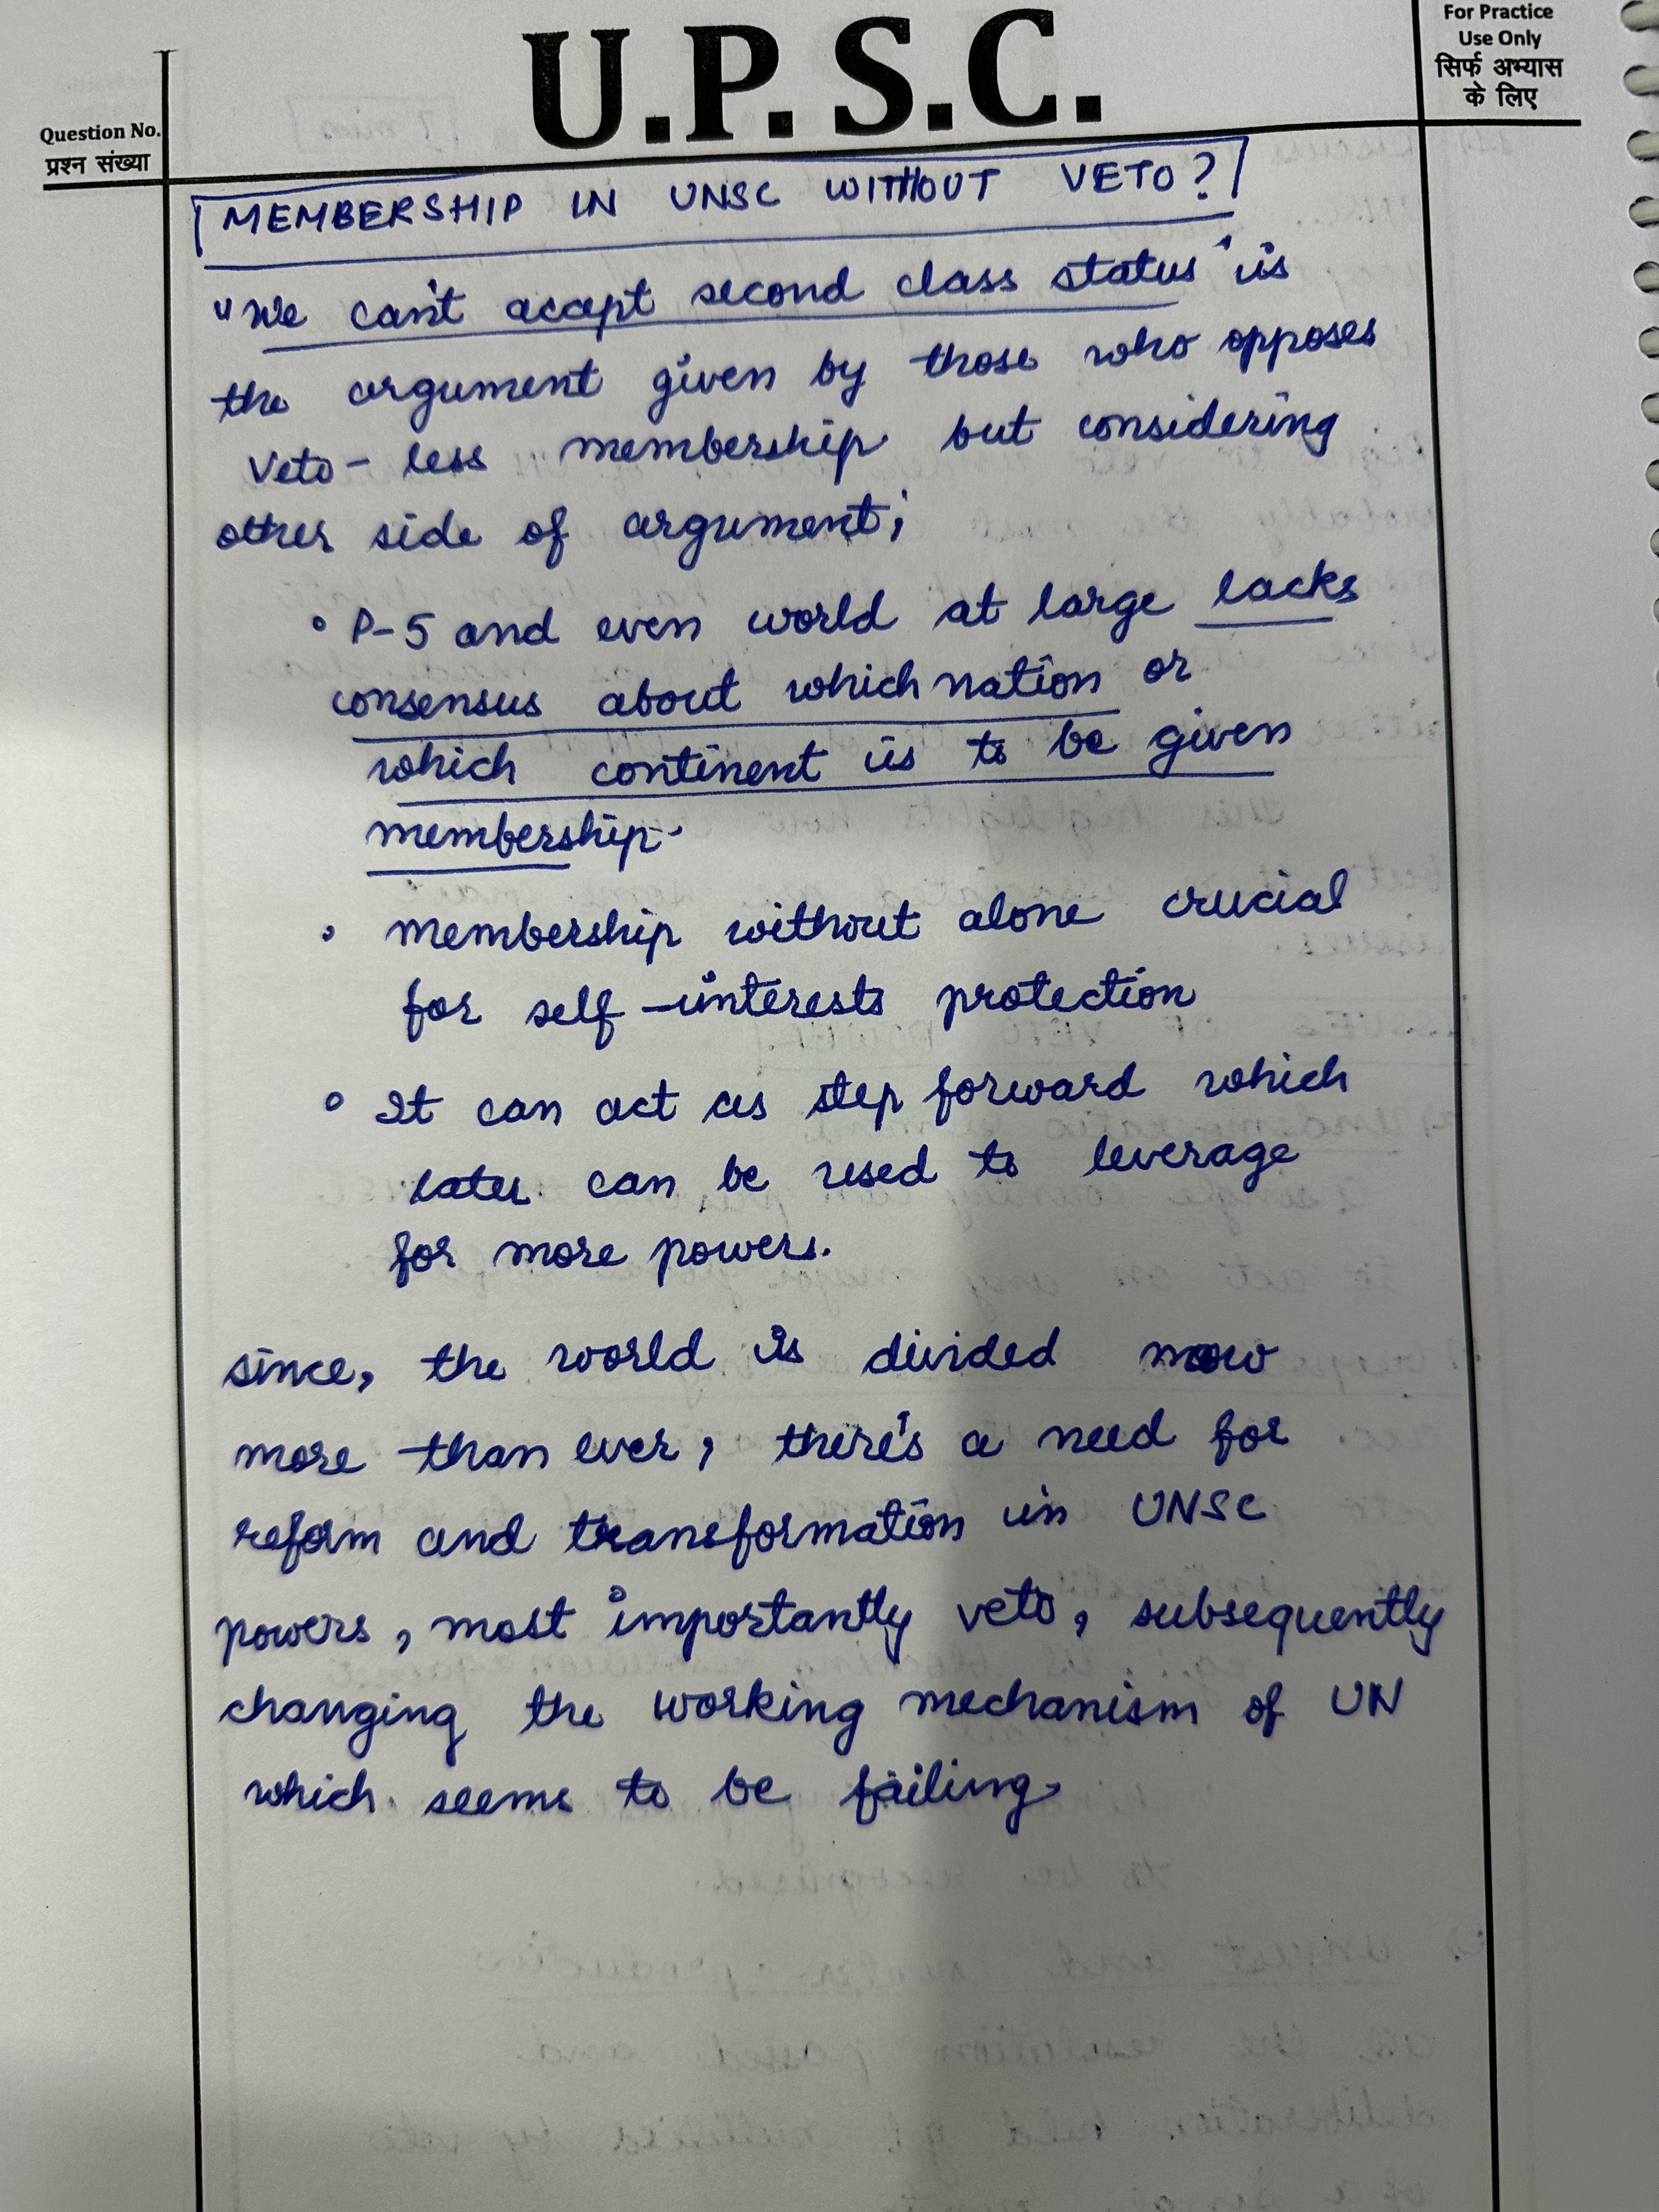 For Practice
Use Only
सिर्फ अभ्यास
के लिए
U.P.S.C.
Question No.
प्रश्न संख्या
MEMBERSHIP IN UNSC WITHOUT VETO?
"We can't accept second class status" is
the argument given by those who opposes
Veto-less membership but considering
other side of argument;
• P-5 and even world at large lacks
consensus about which nation or
which continent is to be given
membership.
• membership without alone crucial
for self-interests protection
• It can act as step forward which
later can be used to leverage
for more powers.
since, the world is divided now
more than ever, there's a need for
reform and transformation in UNSC
powers, most importantly veto, subsequently
changing the working mechanism of UN
which seems to be failing.